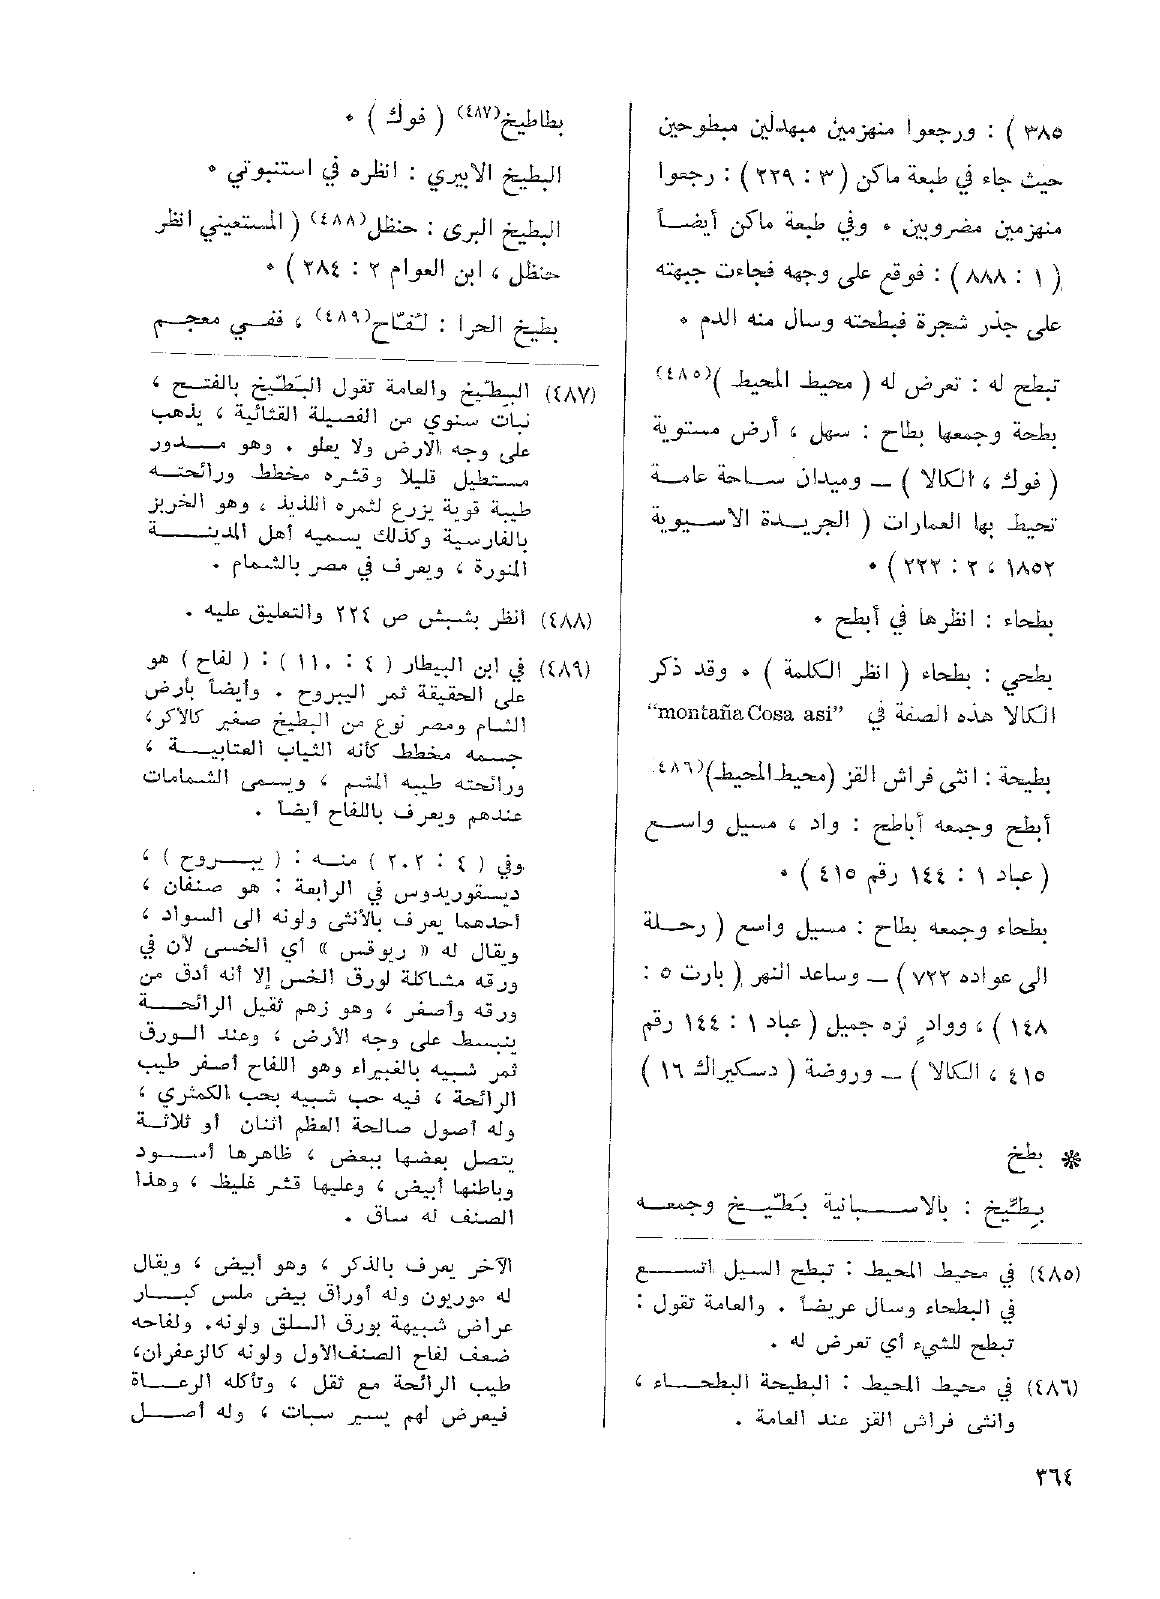 ٣٨٥ ) : ورجعوا منهزمين مبهدلين مبطوحين
حيث جاء في طبعة ماكن ( ٣ : ٢٢٩ ) : رجعوا
منهزمين مضروبين ٠ وفي طبعة ماكن أيضـاً
( ١ : ٨٨٨ ) : فوقع على وجهه فجاءت جبهته
على جذر شجرة فبطحته وسال منه الدم ٠
تبطح له : تعرض له ( محيط المحيط )(٤٨٥)
بطحة وجمعها بطاح : سهل ، أرض مستوية
( فوك ، الكالا ) ــ وميدان ساحة عامة
تحيط بها العمارات ( الجريدة الاسيوية
١٨٥٢ ، ٢ : ٢٢٢ ) ٠
بطحاء : انظرها في أبطح ٠
بطحي : بطحاء ( انظر الكلمة ) ٠ وقد ذكر
الكالا هذه الصفة في “montaña Cosa asi”
بطيحة : انثى فراش القز (محيط المحيط)(٤٨٦)
أبطح وجمعه أباطح : واد ، مسيل واسع
( عباد ١ : ١٤٤ رقم ٤١٥ ) ٠
بطحاء وجمعه بطاح : مسيل واسع ( رحلة
الى عواده ٧٢٢ ) ــ وساعد النهر ( بارت ٥ :
١٤٨ ) ، ووادٍ نزه جميل ( عباد ١ : ١٤٤ رقم
٤١٥ ، الكالا ) ــ وروضة ( دسكيراك ١٦ )
❋ بطخ
بِطِّيخ : بالاسبانية بَطِّيخ وجمعه
(٤٨٥) في محيط المحيط : تبطح السيل اتسع
في البطحاء وسال عريضاً . والعامة تقول :
تبطح للشيء أي تعرض له .
(٤٨٦) في محيط المحيط : البطيحة البطحاء ،
وانثى فراش القز عند العامة .
بطاطيخ(٤٨٧) ( فوك ) ٠
البطيخ الابيري : انظره في استنبوتي ٠
البطيخ البرى : حنظل(٤٨٨) ( المستعيني انظر
حنظل ، ابن العوام ٢ : ٢٨٤ ) ٠
بطيخ الحرا : لُفّاح(٤٨٩) ، ففي معجم
(٤٨٧) البِطّيخ والعامة تقول البَطّيخ بالفتح ،
نبات سنوي من الفصيلة القثائية ، يذهب
على وجه الارض ولا يعلو . وهو مدور
مستطيل قليلا وقشره مخطط ورائحته
طيبة قوية يزرع لثمره اللذيذ ، وهو الخربز
بالفارسية وكذلك يسميه أهل المدينة
المنورة ، ويعرف في مصر بالشمام .
(٤٨٨) انظر بشبش ص ٢٢٤ والتعليق عليه .
(٤٨٩) في ابن البيطار ( ٤ : ١١٠ ) : ( لفاح ) هو
على الحقيقة ثمر اليبروح . وأيضاً بأرض
الشام ومصر نوع من البطيخ صغير كالاكر،
جسمه مخطط كأنه الثياب العتابية ،
ورائحته طيبه المشم ، ويسمى الشمامات
عندهم ويعرف باللفاح أيضاً .
وفي ( ٤ : ٢٠٢ ) منه : ( يبروح ) ،
ديسقوريدوس في الرابعة : هو صنفان ،
أحدهما يعرف بالأنثى ولونه الى السواد ،
ويقال له « ريوقس » أي الخسى لأن في
ورقه مشاكلة لورق الخس إلا أنه أدق من
ورقه وأصفر ، وهو زهم ثقيل الرائحة
ينبسط على وجه الأرض ، وعند الورق
ثمر شبيه بالغبيراء وهو اللفاح أصفر طيب
الرائحة ، فيه حب شبيه بحب الكمثرى ،
وله أصول صالحة العظم اثنان أو ثلاثة
يتصل بعضها ببعض ، ظاهرها أسود
وباطنها أبيض ، وعليها قشر غليظ ، وهذا
الصنف له ساق .
الآخر يعرف بالذكر ، وهو أبيض ، ويقال
له موريون وله أوراق بيض ملس كبار
عراض شبيهة بورق السلق ولونه. ولفاحه
ضعف لفاح الصنف الاول ولونه كالزعفران،
طيب الرائحة مع ثقل ، وتأكله الرعاة
فيعرض لهم يسير سبات ، وله أصل
٣٦٤